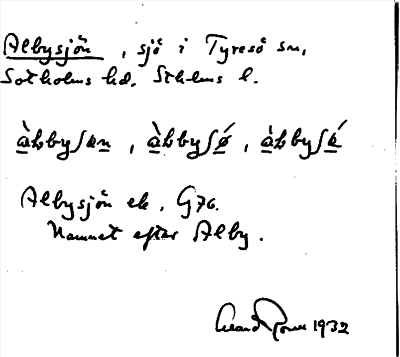 Albysjön, sjö i Tyresö sn,
Sotholms hd. Sthlms l.
àlbyʃøn, àlbyʃǿ, àlbyʃ
Albysjön ek. G76.
Namnet efter Alby.
1932